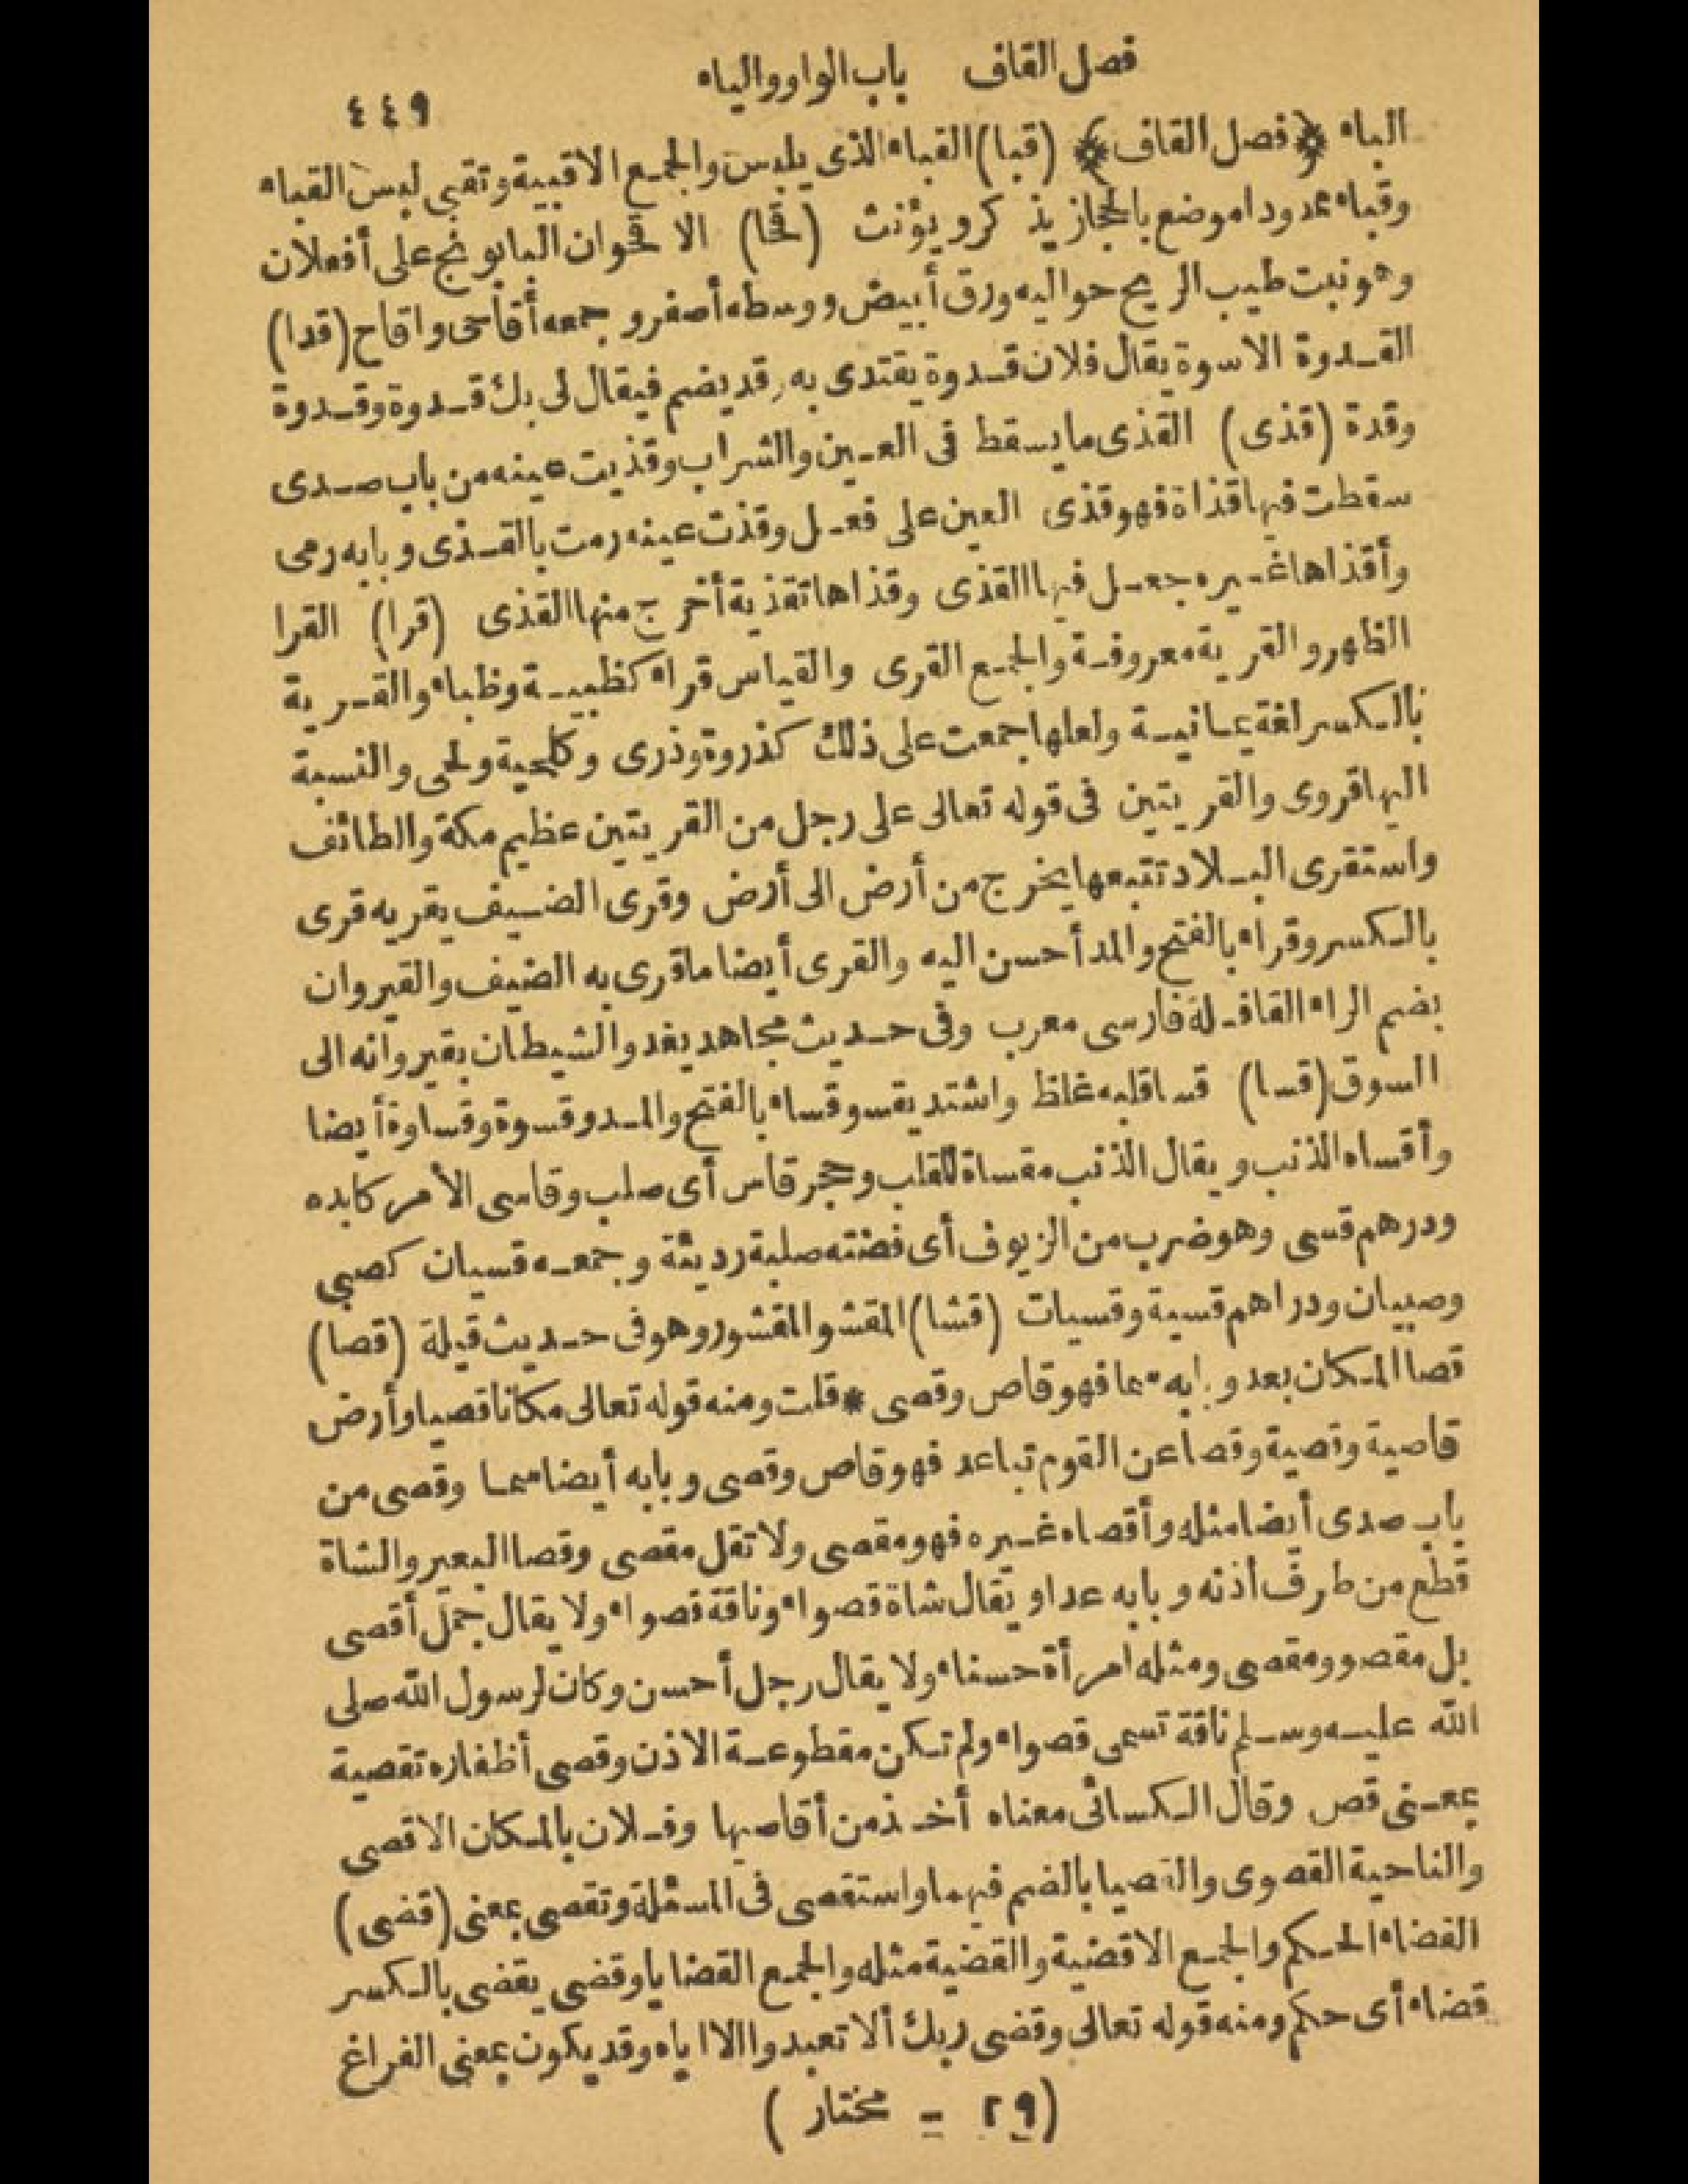 فصل القاف باب الواو والياء
٤٤٩
الباء ﴿فصل القاف﴾ (قبا) القباء الذى يلبس والجمع الاقبية وتقبى لبس القباء
وقباء ممدودا موضع بالحجاز يذكر ويؤنث (قحا) الاقحوان البابونج على أفعلان
وهو نبت طيب الريح حواليه ورق أبيض ووسطه أصفر وجمعه أقاحى واقاح (قدا)
القدوة الاسوة يقال فلان قدوة يقتدى به وقد يضم فيقال لى بك قدوة وقدوة
وقدة (قذى) القذى ما يسقط فى العين والشراب وقذيت عينه من باب صدى
سقطت فيها قذاة فهو قذى العين على فعل وقذت عينه رمت بالقذى وبابه رمى
وأقذاها غيره جعل فيها القذى وقذاها تقذية أخرج منها القذى (قرا) القرا
الظهر والقرية معروفة والجمع القرى والقياس قراء كظبية وظباء والقرية
بالكسر لغة يمانية ولعلها جمعت على ذلك كذروة وذرى وكلحية ولحى والنسبة
اليها قروى والقريتين فى قوله تعالى على رجل من القريتين عظيم مكة والطائف
واستقرى البلاد تتبعها يخرج من أرض الى أرض وقرى الضيف يقريه قرى
بالكسر وقراء بالفتح والمد أحسن اليه والقرى أيضا ما قرى به الضيف والقيروان
بضم الراء القافلة فارسى معرب وفى حديث مجاهد يغدو الشيطان بقيروانه الى
السوق (قسا) قسا قلبه غلظ واشتد يقسو قساء بالفتح والمد وقسوة وقساوة أيضا
وأقساه الذنب ويقال الذنب مقساة للقلب وحجر قاس أى صلب وقاسى الأمر كابده
ودرهم قسى وهو ضرب من الزيوف أى فضته صلبة رديئة وجمعه قسيان كصبى
وصبيان ودراهم قسية وقسيات (قشا) المقشو المقشور وهو فى حديث قيلة (قصا)
قصا المكان بعد وبابه سما فهو قاص وقصى * قلت ومنه قوله تعالى مكانا قصيا وأرض
قاصية وقصية وقصا عن القوم تباعد فهو قاص وقصى وبابه أيضا سما وقصى من
باب صدى أيضا مثله وأقصاه غيره فهو مقصى ولا تقل مقصى وقصا البعير والشاة
قطع من طرف أذنه وبابه عدا ويقال شاة قصواء وناقة قصواء ولا يقال جمل أقصى
بل مقصو ومقصى ومثله امرأة حسناء ولا يقال رجل أحسن وكان لرسول الله صلى
الله عليه وسلم ناقة تسمى قصواء ولم تكن مقطوعة الاذن وقصى أظفاره تقصية
بمعنى قص وقال الكسائى معناه أخذ من أقاصيها وفلان بالمكان الاقصى
والناحية القصوى والقصيا بالضم فيهما واستقصى فى المسئلة وتقصى بمعنى (قضى)
القضاء الحكم والجمع الاقضية والقضية مثله والجمع القضايا وقضى يقضى بالكسر
قضاء أى حكم ومنه قوله تعالى وقضى ربك ألا تعبدوا الا اياه وقد يكون بمعنى الفراغ
(٢٩ - مختار)